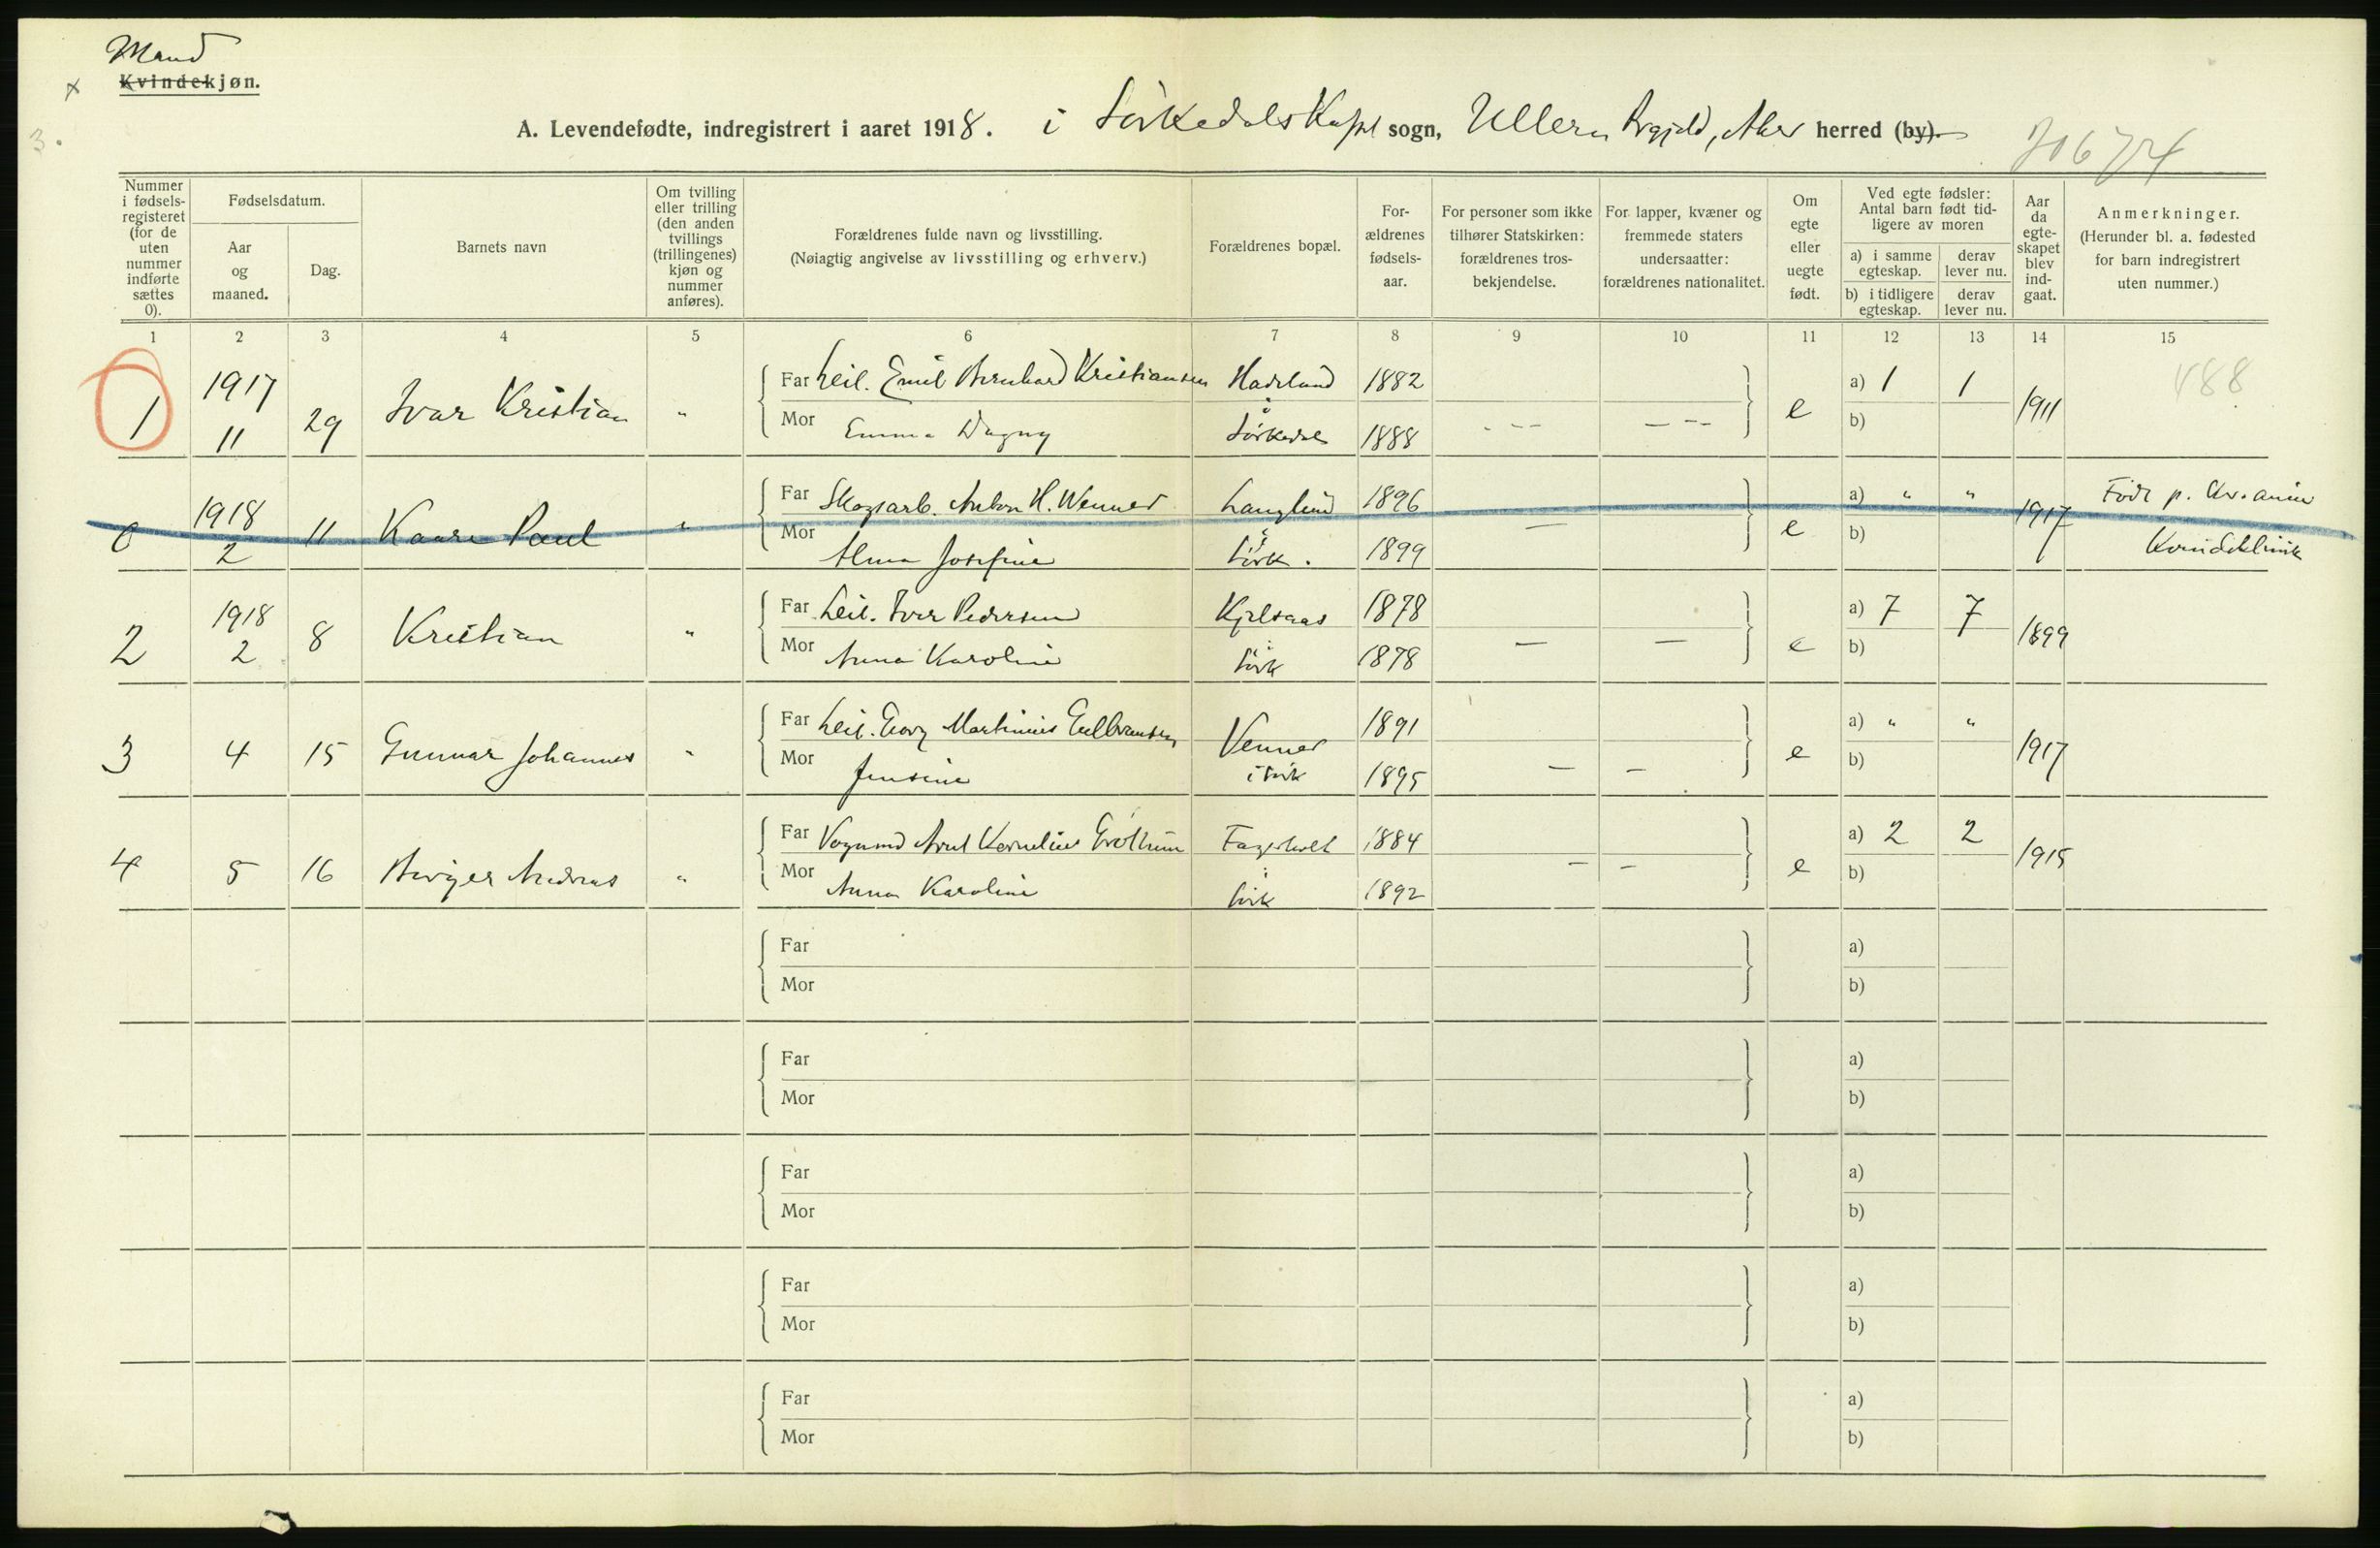 Mand
Kvindekjøn.
x
3.
A. Levendefødte, indregistrert i aaret 1918. i Sørkedals Kapel sogn, Ullern Prgjeld, Aker herred (by).
Nummer i fødsels-registeret (for de uten nummer indførte sættes 0).
Fødselsdatum.
Aar og maaned.
Dag.
Barnets navn
Om tvilling eller trilling (den anden tvillings (trillingenes) kjøn og nummer anføres).
Forældrenes fulde navn og livsstilling.
(Nøiagtig angivelse av livsstilling og erhverv.)
Forældrenes bopæl.
For-ældrenes fødsels-aar.
For personer som ikke tilhører Statskirken: forældrenes tros-bekjendelse.
For lapper, kvæner og fremmede staters undersaatter: forældrenes nationalitet.
Om egte eller uegte født.
Ved egte fødsler: Antal barn født tid-ligere av moren
a) i samme egteskap.
derav lever nu.
b) i tidligere egteskap.
derav lever nu.
Aar da egte-skapet blev ind-gaat.
Anmerkninger.
(Herunder bl. a. fødested for barn indregistrert uten nummer.)
1 2 3 4 5 6 7 8 9 10 11 12 13 14 15
1 1917 11 29 Ivar Kristian "
Far Leil. Emil Bernhard Kristiansen Hadeland 1882 a) 1 1
Mor Emma Dagny i Sørkedal 1888 - - - — - - e b) 1911
488
0 1918 2 11 Kaare Paul "
Far Skogsarb. Anton H. Wenner Langlind 1896 a) " " 1917 Født p. Kr.ania
Mor Alma Josefine i Sørk. 1899 — e b) Kvindeklinik
2 1918 2 8 Kristian "
Far Leil. Iver Pedersen Kjelsaas 1878 a) 7 7 1899
Mor Anna Karoline i Sørk 1878 — — e b)
3 4 15 Gunnar Johannes "
Far Leil. Georg Martinius Gulbransen Venner 1891 a) " " 1917
Mor Jensine i Sørk 1895 — — e b)
4 5 16 Birger Andreas "
Far Vognmd Arnt Kornelius Grøttum Fagerholt 1884 a) 2 2 1915
Mor Anna Karoline i Sørk 1892 — — e b)
Far a)
Mor b)
Far a)
Mor b)
Far a)
Mor b)
Far a)
Mor b)
Far a)
Mor b)